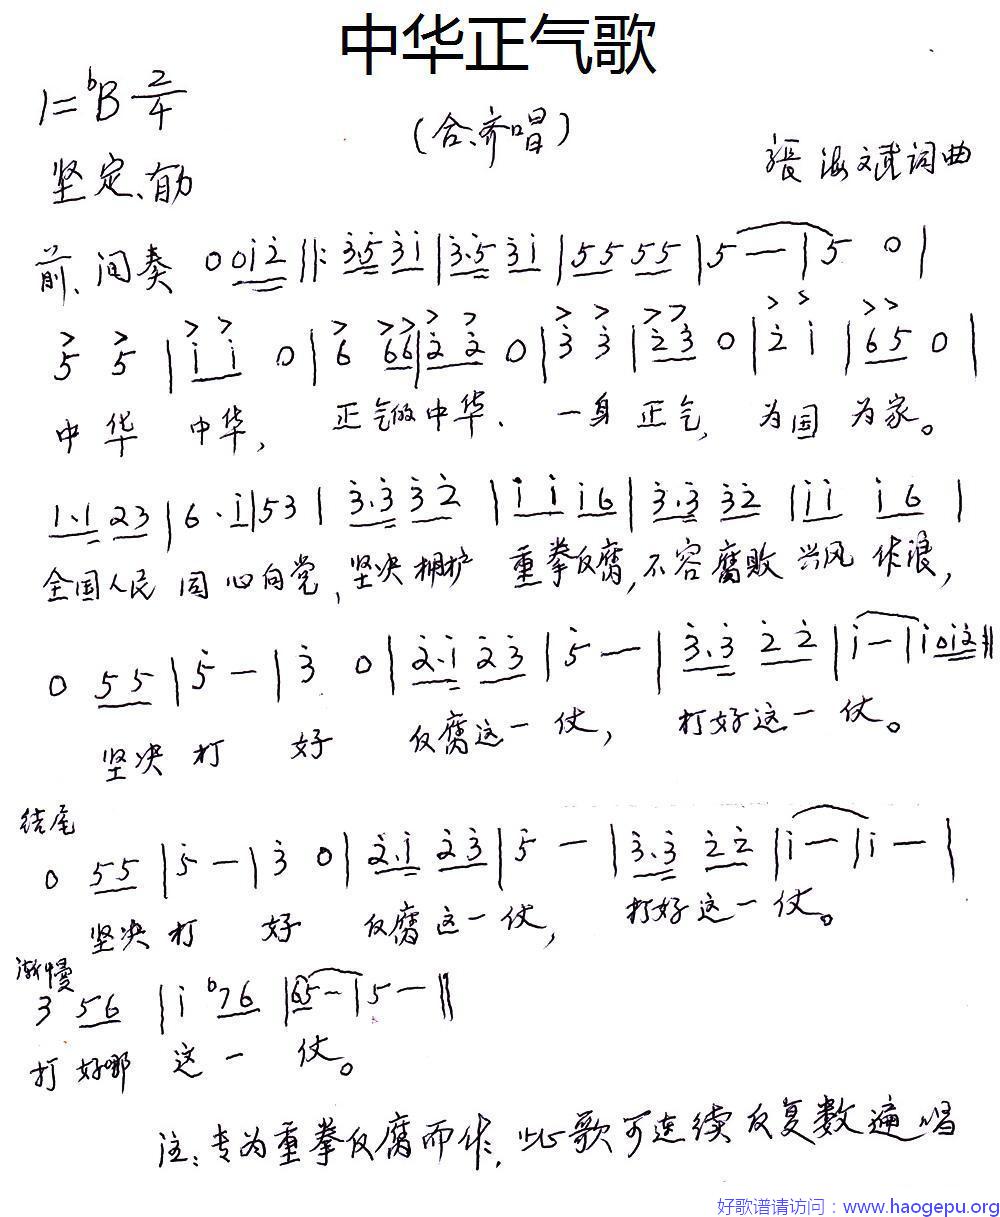 中华正气歌
1=ᵇB 2/4
(合、齐唱)
坚定、有力
張海斌词曲
前、间奏 0 0i̇2̇ ‖: 3̇·5̇ 3̇i̇ | 3̇·5̇ 3̇i̇ | 55 55 | 5 — | 5 0 |
> > > > > >> > > > > > > > > > >
5 5 | i̇ i̇ 0 | 6 66 | 2̇ 2̇ 0 | 3̇ 3̇ | 2̇3̇ 0 | 2̇ i̇ | 65 0 |
中华 中华, 正气的中华、 一身正气, 为国为家。
1·1 23 | 6·i̇ | 53 | 3̇·3̇ 3̇2̇ | i̇ i̇ i̇6 | 3̇·3̇ 3̇2̇ | i̇i̇ i̇6 |
全国人民 同心向党, 坚决拥护 重拳反腐, 不容腐败 兴风作浪,
0 55 | 5̇ — | 3̇ 0 | 2̇·i̇ 2̇3̇ | 5̇ — | 3̇·3̇ 2̇2̇ | i̇ — | i̇ 0i̇2̇ ‖
坚决打 好 反腐这一仗, 打好这一仗。
结尾
0 55 | 5̇ — | 3̇ 0 | 2̇·i̇ 2̇3̇ | 5̇ — | 3̇·3̇ 2̇2̇ | i̇ — | i̇ — |
坚决打 好 反腐这一仗, 打好这一仗。
渐慢
3 56 | i̇ ᵇ76 | 65 — | 5 — ‖
打好哪 这一 仗。
注:专为重拳反腐而作,此歌可连续反复数遍唱
好歌谱请访问：www.haogepu.org